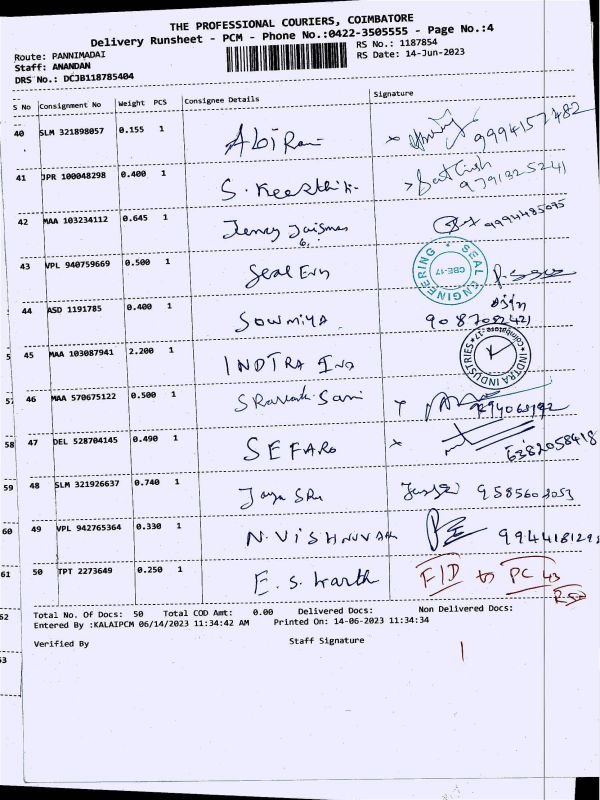 THE PROFESSIONAL COURIERS, COIMBATORE
Delivery Runsheet - PCM - Phone No.:0422-3505555 - Page No.:4
Route: PANNIMADAI RS No.: 1187854
Staff: ANANDAN RS Date: 14-Jun-2023
DRS No.: DCJB118785404
S No Consignment No Weight PCS Consignee Details Signature
40 SLM 321898057 0.155 1 Abi Rami 9994157482
41 JPR 100048298 0.400 1 S. Keerthik Sathish 9791325241
42 MAA 103234112 0.645 1 Jency 9994485095
43 VPL 940759669 0.500 1 Seal Eng SEAL ENGINEERING CBE-17
44 ASD 1191785 0.400 1 Sowmiya
45 MAA 103087941 2.200 1 INDTRA Ind INDTRA INDUSTRIES Coimbatore-17
5 46 MAA 570675122 0.500 1
58 47 DEL 528704145 0.490 1 SEFARO 6382058418
59 48 SLM 321926637 0.740 1 Jaya Sri 9585602053
60 49 VPL 942765364 0.330 1 N. VISHNUVAR
61 50 TPT 2273649 0.250 1 E. S. Karth F/D to PC 43
62 Total No. Of Docs: 50 Total COD Amt: 0.00 Delivered Docs: Non Delivered Docs:
Entered By :KALAIPCM 06/14/2023 11:34:42 AM Printed On: 14-06-2023 11:34:34
Verified By Staff Signature